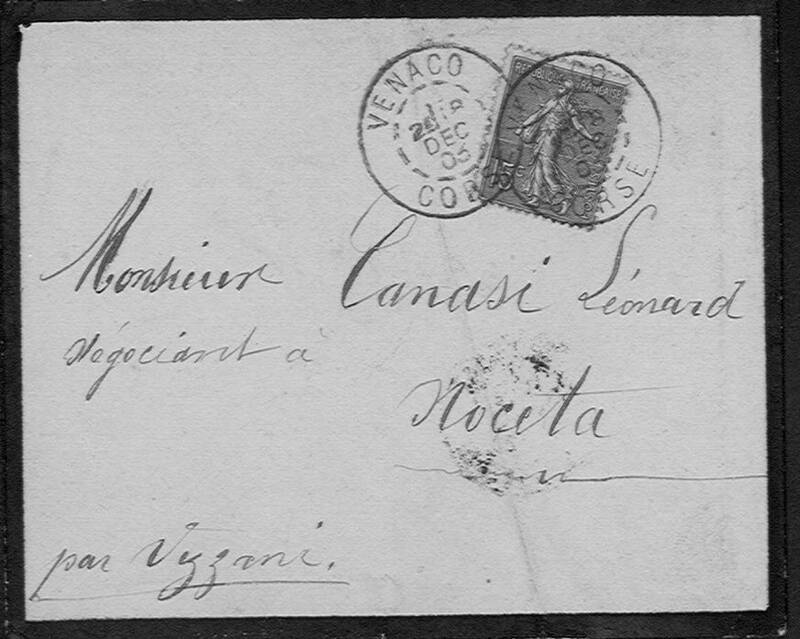 VENACO
18
DEC
03
CORSE
REPUBLIQUE FRANÇAISE
15c
CORSE
Monsieur Canasi Léonard
Négociant à
Noceta
par Vezzani.